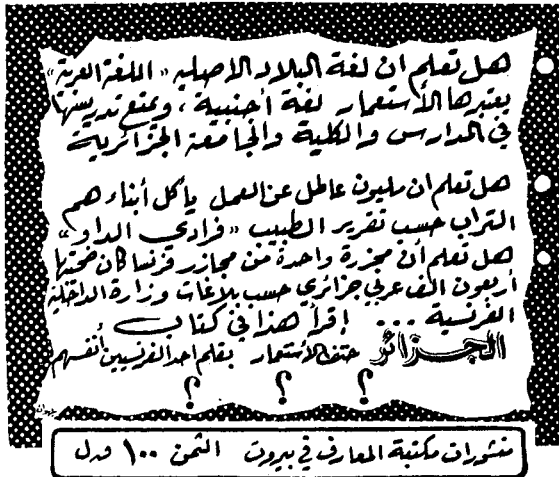 هل تعلم ان لغة البلاد الاصليه « اللغة العربية »
يعتبرها الأستعمار لغة أجنبية ، ويمنع تدريسها
في المدارس والكلية والجامعة الجزائرية
هل تعلم ان مليون عاطل عن العمل يأكل أبناءهم
التراب حسب تقرير الطبيب « فرادى الداو »
هل تعلم أن مجزرة واحدة من مجازر فرنسا كان ضحيتها
أربعون الف عربي جزائري حسب بلاغات وزارة الداخلية
الفرنسية ... إقرأ هذا في كتاب
الجزائر حتف الأستعمار بقلم احد الفرنسيين أنفسهم
؟ ؟ ؟
منشورات مكتبة المعارف في بيروت الثمن ١٠٠ ق.ل